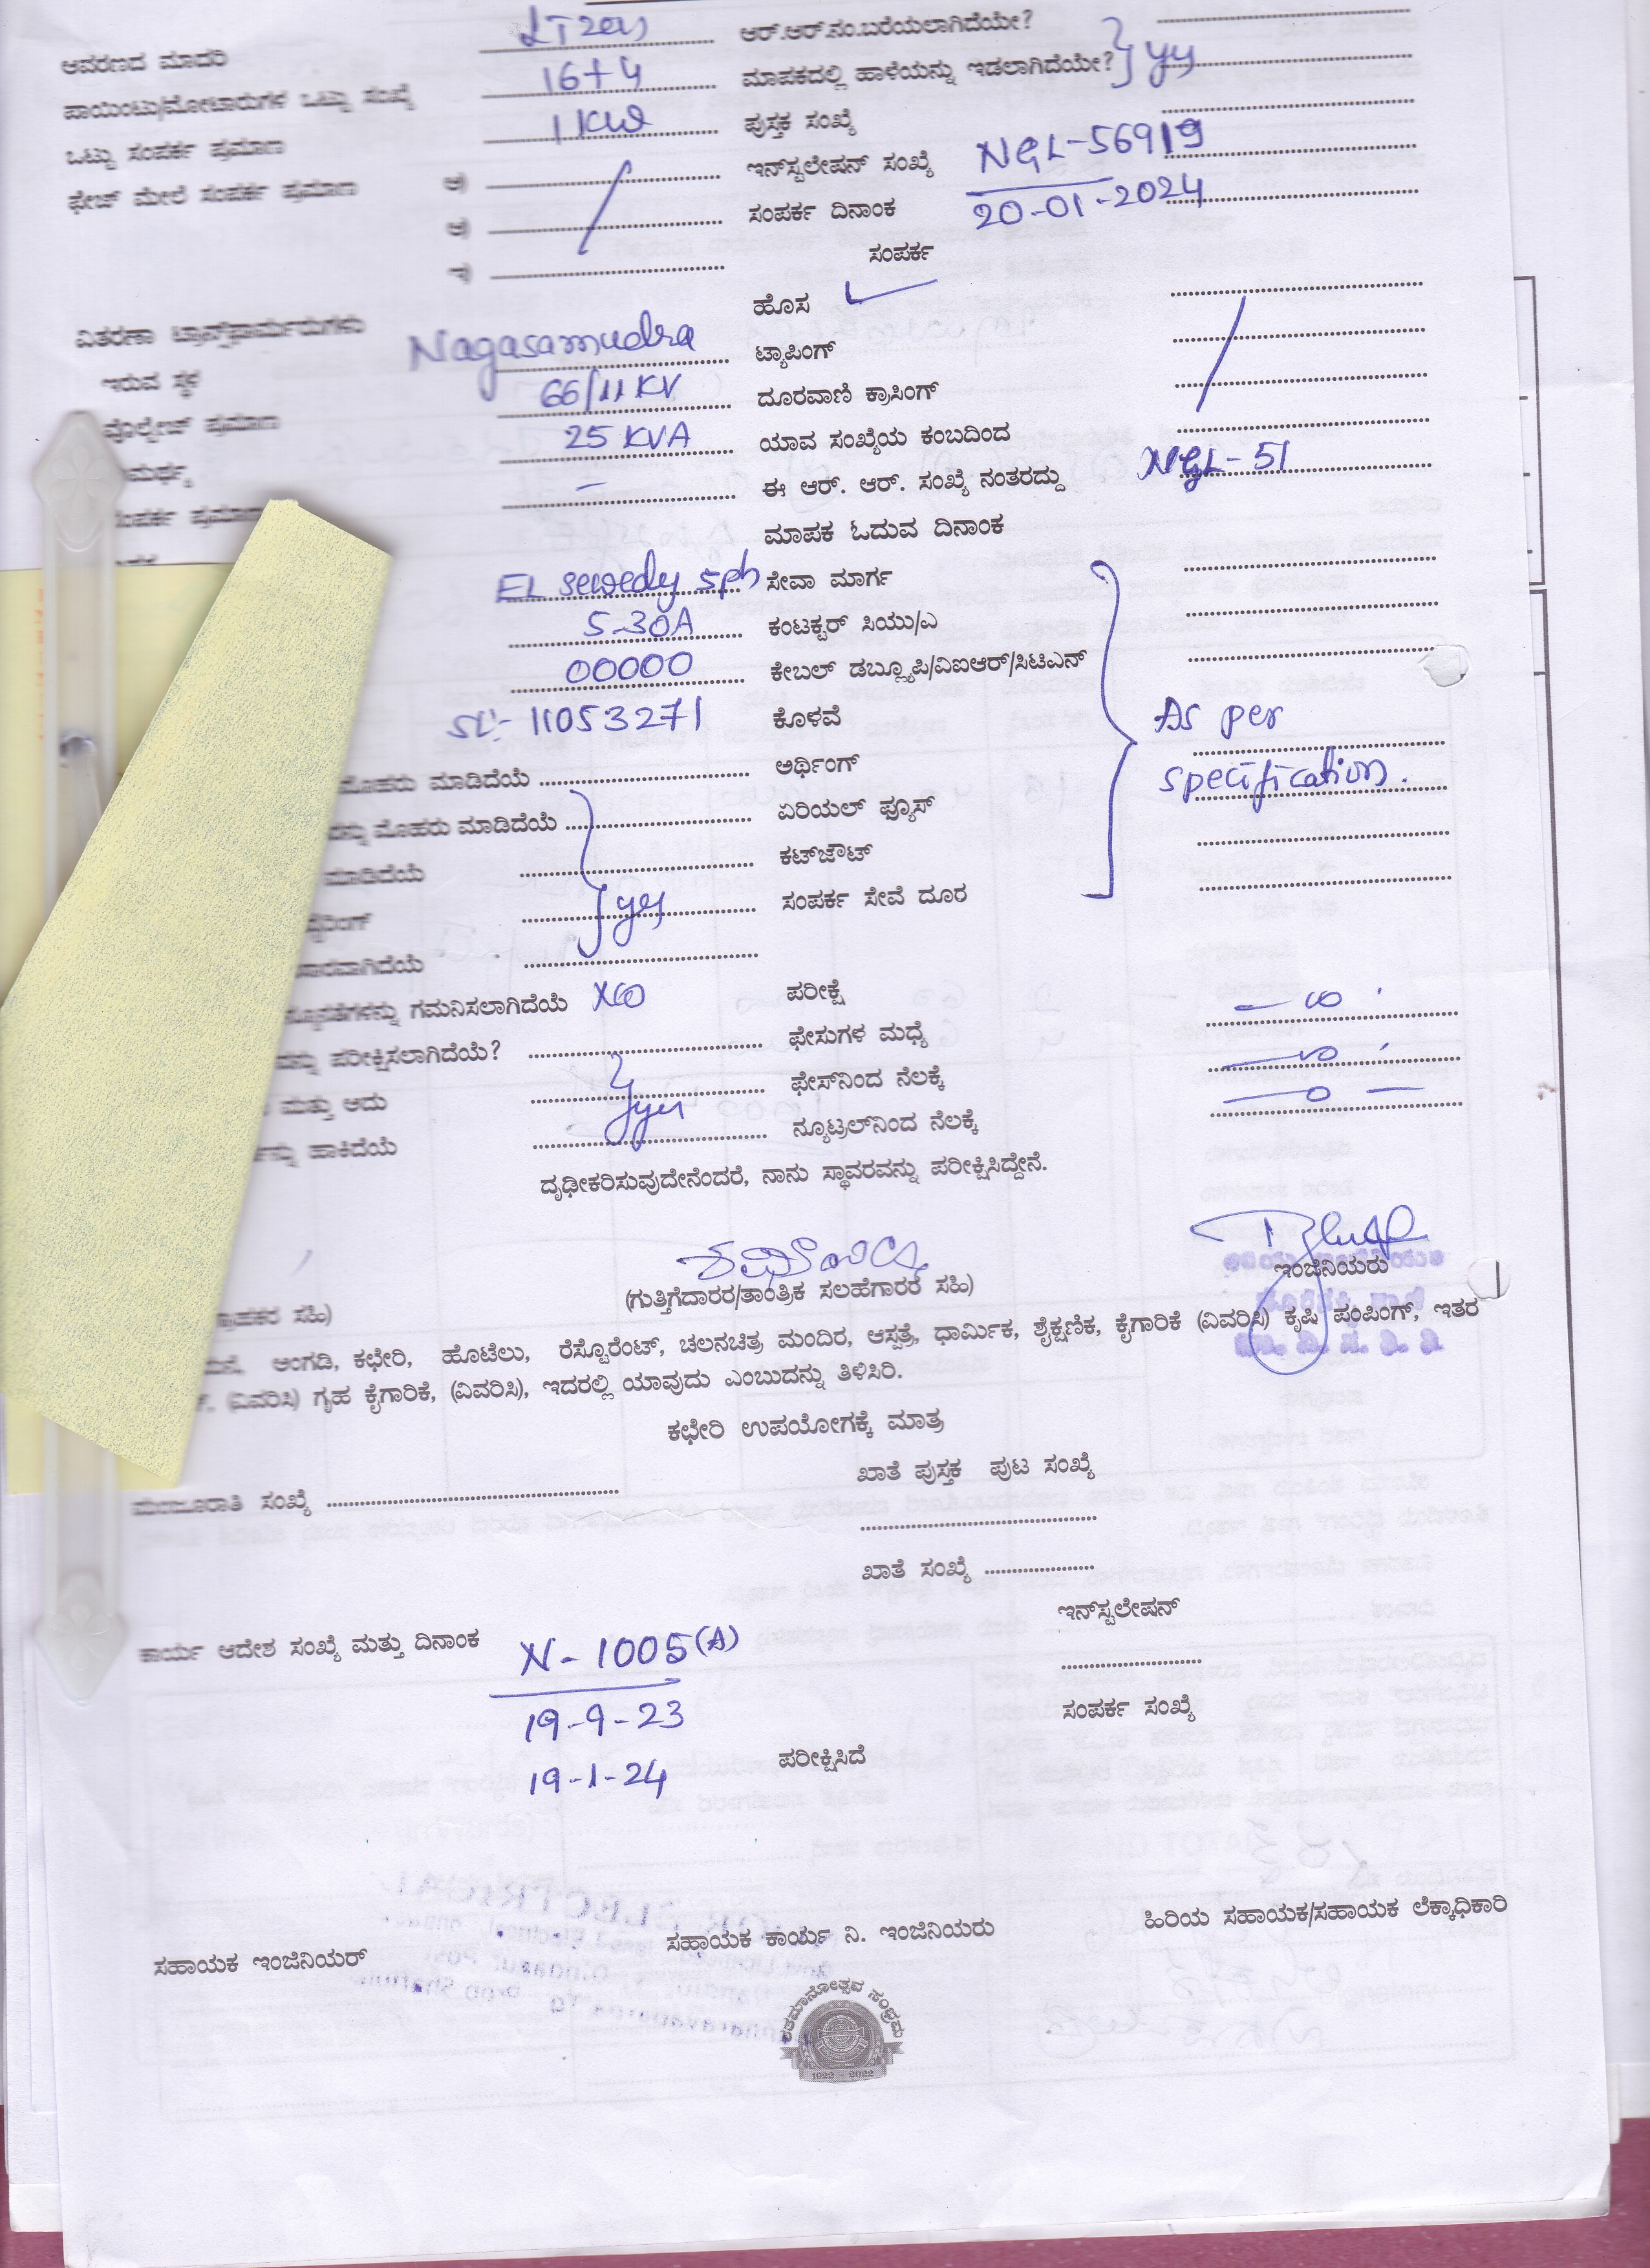 ಆವರಣದ ಮಾದರಿ ಆರ್.ಆರ್.ನಂ.ಬರೆಯಲಾಗಿದೆಯೇ?
ಪಾಯಿಂಟು/ಮೋಟಾರುಗಳ ಒಟ್ಟು ಸಂಖ್ಯೆ 16+4 ಮಾಪಕದಲ್ಲಿ ಹಾಳೆಯನ್ನು ಇಡಲಾಗಿದೆಯೇ?
ಒಟ್ಟು ಸಂಪರ್ಕ ಪ್ರಮಾಣ 1 KW ಪುಸ್ತಕ ಸಂಖ್ಯೆ
ಫೇಜ್ ಮೇಲೆ ಸಂಪರ್ಕ ಪ್ರಮಾಣ ಅ) ಇನ್‌ಸ್ಟಲೇಷನ್ ಸಂಖ್ಯೆ NGL-56919
ಆ) ಸಂಪರ್ಕ ದಿನಾಂಕ 20-01-2024
ಇ) ಸಂಪರ್ಕ
ಹೊಸ ✓
ವಿತರಣಾ ಟ್ರಾನ್ಸ್‌ಫಾರ್ಮರುಗಳು
ಇರುವ ಸ್ಥಳ Nagasamudra ಟ್ಯಾಪಿಂಗ್
ವೋಲ್ಟೇಜ್ ಪ್ರಮಾಣ 66/11 KV ದೂರವಾಣಿ ಕ್ರಾಸಿಂಗ್
25 KVA ಯಾವ ಸಂಖ್ಯೆಯ ಕಂಬದಿಂದ
ಸಂಪರ್ಕ ಪ್ರಮಾಣ - ಈ ಆರ್. ಆರ್. ಸಂಖ್ಯೆ ನಂತರದ್ದು NGL-51
ಮಾಪಕ ಓದುವ ದಿನಾಂಕ
EL sewedy sph ಸೇವಾ ಮಾರ್ಗ
5-30A ಕಂಟಕ್ಟರ್ ಸಿಯು/ಎ
00000 ಕೇಬಲ್ ಡಬ್ಲ್ಯೂಪಿ/ವಿಐಆರ್/ಸಿಟಿಎನ್
SL:- 11053271 ಕೊಳವೆ As per
ಮೊಹರು ಮಾಡಿದೆಯೆ ಅರ್ಥಿಂಗ್ specification.
ಮೊಹರು ಮಾಡಿದೆಯೆ ಏರಿಯಲ್ ಫ್ಯೂಸ್
ಮಾಡಿದೆಯೆ ಕಟ್‌ಔಟ್
yes ಸಂಪರ್ಕ ಸೇವೆ ದೂರ
ಗಮನಿಸಲಾಗಿದೆಯೆ NO ಪರೀಕ್ಷೆ
ಪರಿಕ್ಷಿಸಲಾಗಿದೆಯೆ? ಫೇಸುಗಳ ಮಧ್ಯೆ
ಮತ್ತು ಅದು yes ಫೇಸ್‌ನಿಂದ ನೆಲಕ್ಕೆ
ಹಾಕಿದೆಯೆ ನ್ಯೂಟ್ರಲ್‌ನಿಂದ ನೆಲಕ್ಕೆ
ದೃಢೀಕರಿಸುವುದೇನೆಂದರೆ, ನಾನು ಸ್ಥಾವರವನ್ನು ಪರೀಕ್ಷಿಸಿದ್ದೇನೆ.
ಇಂಜಿನಿಯರು
(ಗುತ್ತಿಗೆದಾರರ/ತಾಂತ್ರಿಕ ಸಲಹೆಗಾರರ ಸಹಿ)
ಅಂಗಡಿ, ಕಛೇರಿ, ಹೊಟೆಲು, ರೆಸ್ಟೊರೆಂಟ್, ಚಲನಚಿತ್ರ ಮಂದಿರ, ಆಸ್ಪತ್ರೆ, ಧಾರ್ಮಿಕ, ಶೈಕ್ಷಣಿಕ, ಕೈಗಾರಿಕೆ (ವಿವರಿಸಿ) ಕೃಷಿ ಪಂಪಿಂಗ್, ಇತರ
(ವಿವರಿಸಿ) ಗೃಹ ಕೈಗಾರಿಕೆ, (ವಿವರಿಸಿ), ಇದರಲ್ಲಿ ಯಾವುದು ಎಂಬುದನ್ನು ತಿಳಿಸಿರಿ.
ಕಛೇರಿ ಉಪಯೋಗಕ್ಕೆ ಮಾತ್ರ
ಖಾತೆ ಪುಸ್ತಕ ಪುಟ ಸಂಖ್ಯೆ
ಮಂಜೂರಾತಿ ಸಂಖ್ಯೆ
ಖಾತೆ ಸಂಖ್ಯೆ
ಇನ್‌ಸ್ಟಲೇಷನ್
ಕಾರ್ಯ ಆದೇಶ ಸಂಖ್ಯೆ ಮತ್ತು ದಿನಾಂಕ N-1005(A)
19-9-23 ಸಂಪರ್ಕ ಸಂಖ್ಯೆ
19-1-24 ಪರೀಕ್ಷಿಸಿದೆ
ಸಹಾಯಕ ಇಂಜಿನಿಯರ್ ಸಹಾಯಕ ಕಾರ್ಯ ನಿ. ಇಂಜಿನಿಯರು ಹಿರಿಯ ಸಹಾಯಕ/ಸಹಾಯಕ ಲೆಕ್ಕಾಧಿಕಾರಿ
ಶತಮಾನೋತ್ಸವ ಸಂಭ್ರಮ
1922 - 2022